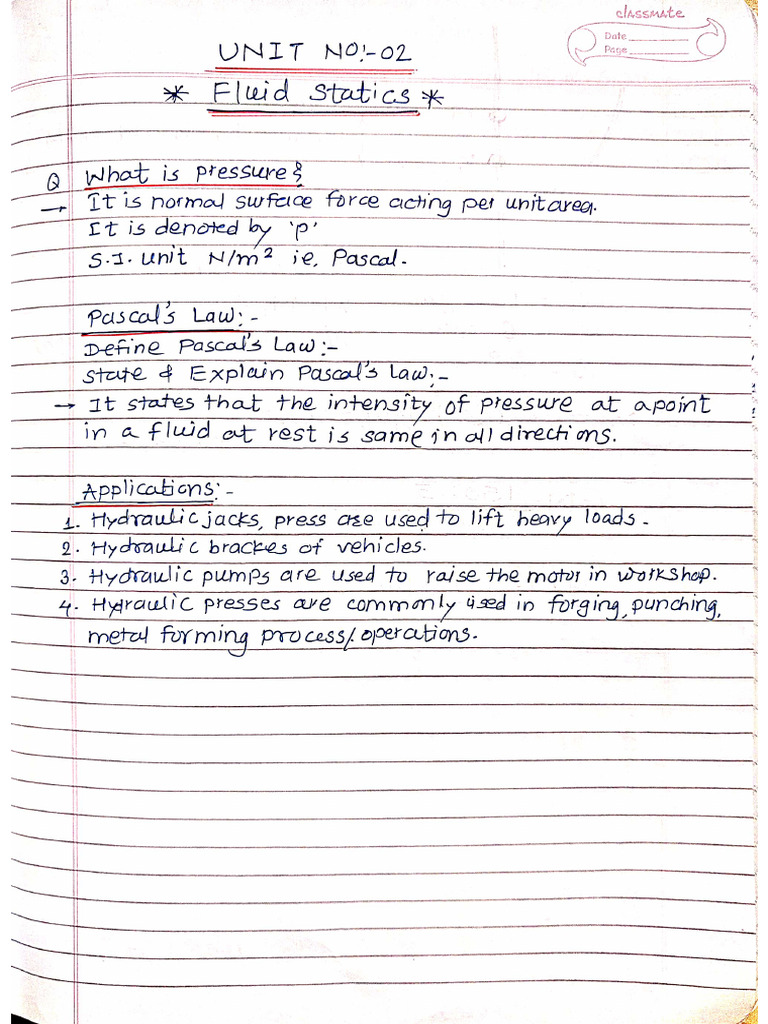 classmate
Date
Page
UNIT NO:-02
* Fluid Statics *
Q What is pressure?
→ It is normal surface force acting per unit area.
It is denoted by 'p'
S.I. unit N/m² ie, Pascal.
Pascal's Law:-
Define Pascal's Law:-
State & Explain Pascal's Law:-
→ It states that the intensity of pressure at a point
in a fluid at rest is same in all directions.
Applications:-
1. Hydraulic jacks, press are used to lift heavy loads.
2. Hydraulic brackes of vehicles.
3. Hydraulic pumps are used to raise the motor in workshop.
4. Hyraulic presses are commonly used in forging, punching,
metal forming process/operations.